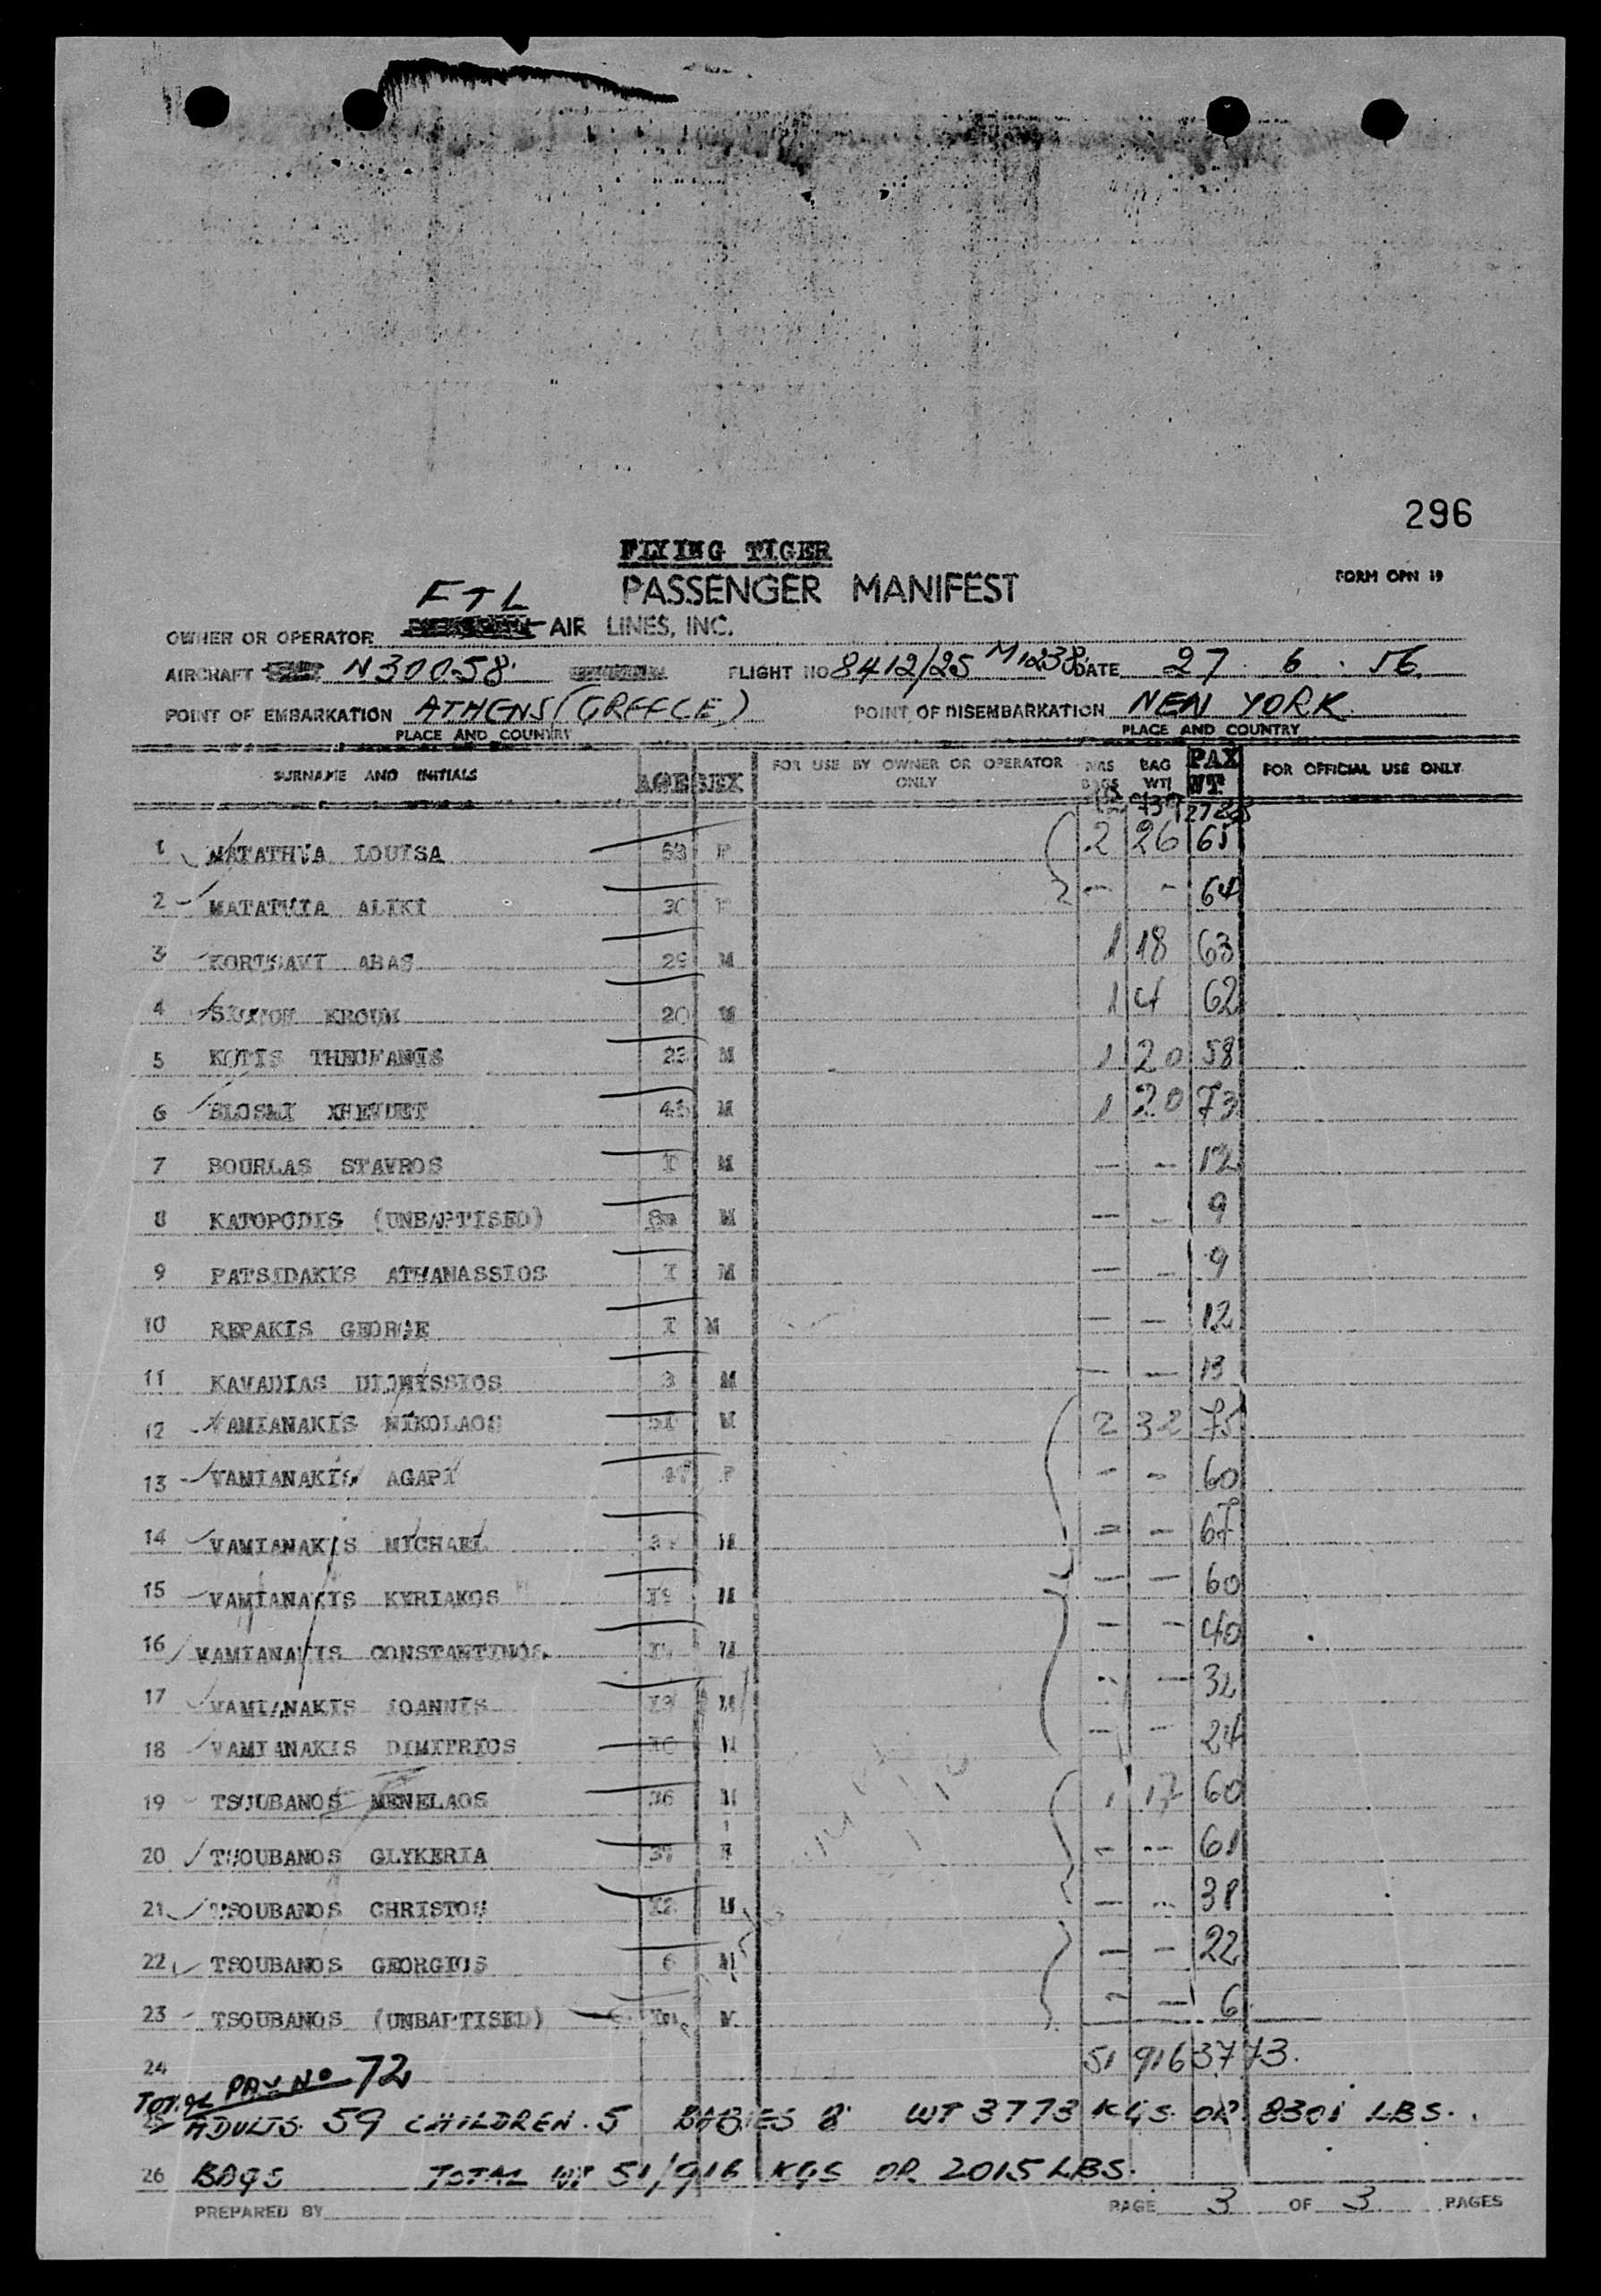 296
FLYING TIGER
PASSENGER MANIFEST
FORM OPN 19
FTL
OWNER OR OPERATOR AIR LINES, INC.
AIRCRAFT N30058 FLIGHT NO 8412/25 M1238 DATE 27 . 6 . 56.
POINT OF EMBARKATION ATHENS (GREECE) POINT OF DISEMBARKATION NEW YORK
PLACE AND COUNTRY PLACE AND COUNTRY
SURNAME AND INITIALS AGE SEX FOR USE BY OWNER OR OPERATOR ONLY BAGS BAG WT PAX WT. FOR OFFICIAL USE ONLY
1 MATATHIA LOUISA 53 F 2 26 65
2 MATATHIA ALIKI 30 F - - 64
3 ABAS 29 M 1 18 63
4 KROUM 20 M 1 4 62
5 KOTIS THEOFANIS 23 M 1 20 58
6 XHEVDET M 1 20 73
7 BOURLAS STAVROS I M - - 12
8 KATOPODIS (UNBAPTISED) 8m M - - 9
9 PATSIDAKIS ATHANASSIOS I M - - 9
10 REPAKIS GEORGE I M - - 12
11 KAVADIAS DIONYSSIOS 3 M - - 13
12 VAMIANAKIS NIKOLAOS 51 M 2 32 75
13 VAMIANAKIS AGAPI 47 F - - 60
14 VAMIANAKIS MICHAEL M - - 67
15 VAMIANAKIS KYRIAKOS M - - 60
16 VAMIANAKIS CONSTANTINOS M - - 40
17 VAMIANAKIS IOANNIS M - - 32
18 VAMIANAKIS DIMITRIOS IO M - - 24
19 TSOUBANOS MENELAOS 36 M 1 60
20 TSOUBANOS GLYKERIA 37 F - - 61
21 TSOUBANOS CHRISTOS I2 M - - 38
22 TSOUBANOS GEORGIOS 6 M - - 22
23 TSOUBANOS (UNBAPTISED) M - - 6
24 51 916 3773.
TOTAL PAX No 72
25 ADULTS 59 CHILDREN . 5 BABIES 8 WT 3773 KGS OR 8301 LBS.
26 BAGS TOTAL WT 51/916 KGS OR 2015 LBS.
PREPARED BY PAGE 3 OF 3 PAGES